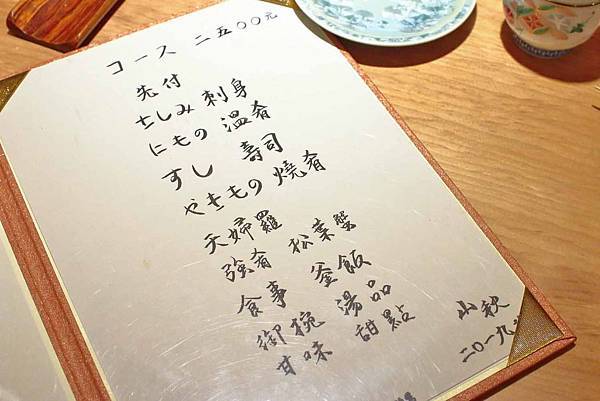 コース 二五〇〇元
先付
さしみ 刺身
にもの 溫肴
すし 壽司
やきもの 燒肴
天婦羅
強肴 松葉蟹
食事 釜飯
御椀 湯品
甘味 甜點
山秋
二〇一九